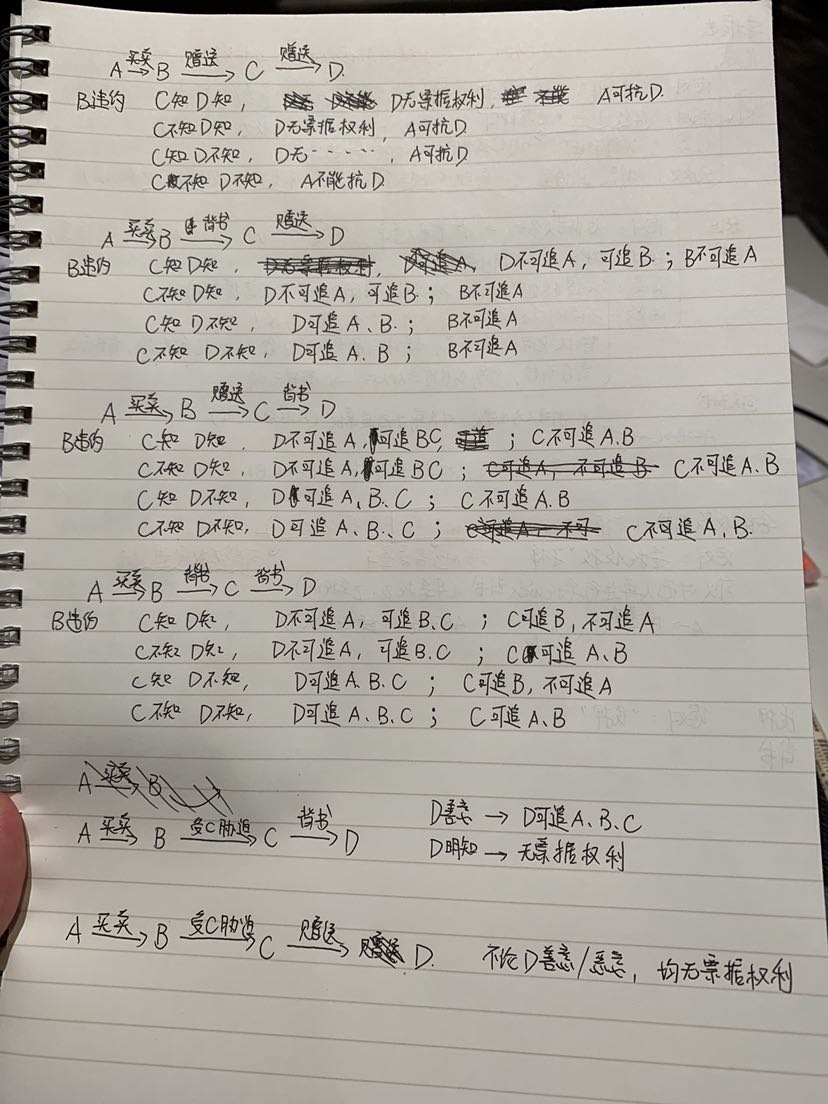 A 买卖→ B 赠送→ C 赠送→ D.
B违约 C知 D知, D无票据权利, A可抗D.
C不知 D知, D无票据权利, A可抗D.
C知 D不知, D无……, A可抗D
C不知 D不知, A不能抗D.
A 买卖→ B 背书→ C 赠送→ D
B违约 C知 D知, D不可追A, 可追B.; B不可追A
C不知 D知, D不可追A, 可追B; B不可追A
C知 D不知, D可追A、B.; B不可追A
C不知 D不知, D可追A.B; B不可追A
A 买卖→ B 赠送→ C 背书→ D
B违约 C知 D知, D不可追A, 可追BC, ; C不可追A.B
C不知 D知, D不可追A, 可追BC; C不可追A.B
C知 D不知, D可追A、B、C; C不可追A.B
C不知 D不知, D可追A、B、C; C不可追A、B.
A 买卖→ B 背书→ C 背书→ D
B违约 C知 D知, D不可追A, 可追B.C; C可追B, 不可追A
C不知 D知, D不可追A, 可追B.C; C可追A、B
C知 D不知, D可追A.B.C; C可追B, 不可追A
C不知 D不知, D可追A.B.C; C可追A、B
A 买卖→ B
A 买卖→ B 受C胁迫→ C 背书→ D D善意→D可追A、B、C
D明知→无票据权利
A 买卖→ B 受C胁迫→ C 赠送→ D. 不论D善意/恶意, 均无票据权利